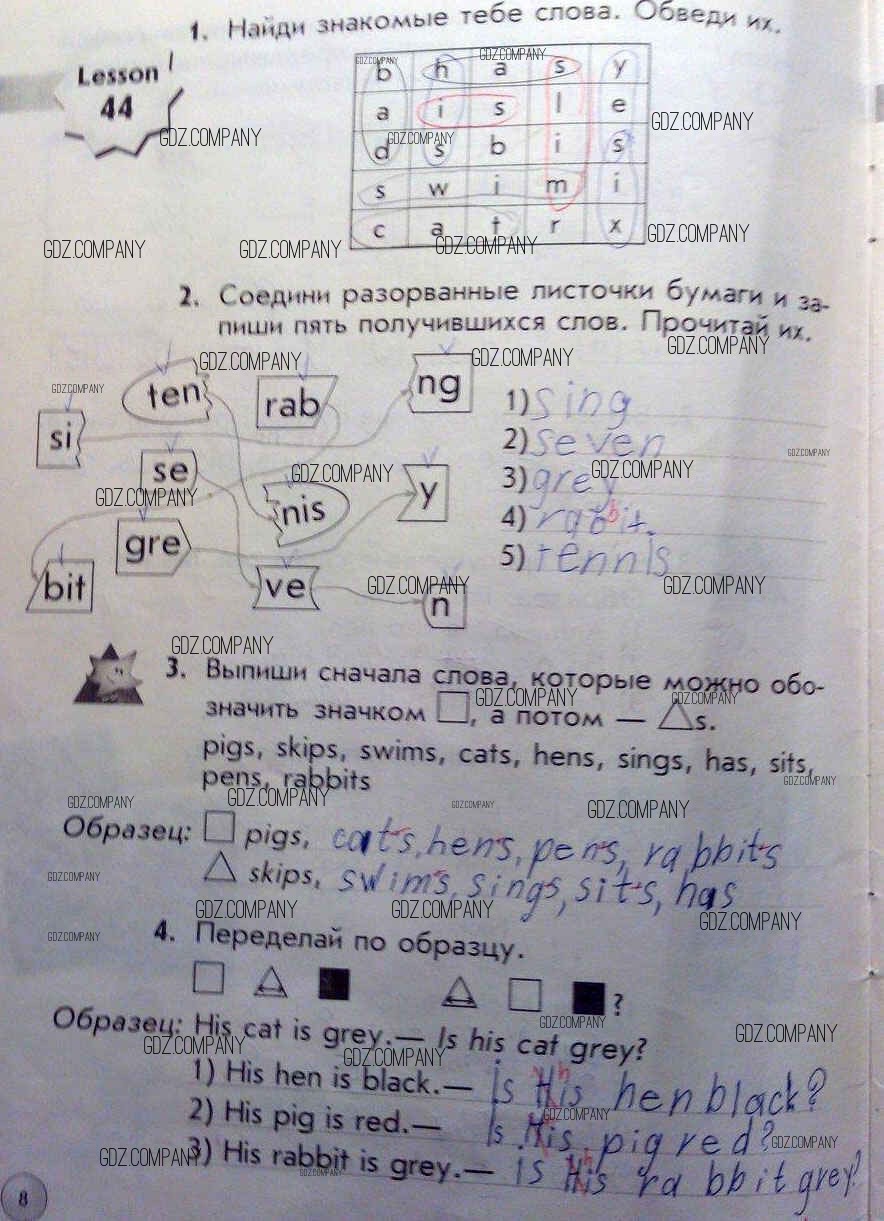 1. Найди знакомые тебе слова. Обведи их.
Lesson
44
b h a s y
a i s l e
d s b i s
s w i m i
c a t r x
2. Соедини разорванные листочки бумаги и за-
пиши пять получившихся слов. Прочитай их.
ten rab ng
si
se
nis y
gre
bit ve n
1) sing
2) seven
3) grey
4) rabbit
5) tennis
3. Выпиши сначала слова, которые можно обо-
значить значком , а потом — s.
pigs, skips, swims, cats, hens, sings, has, sits,
pens, rabbits
Образец: pigs, cats, hens, pens, rabbits
skips, swims, sings, sits, has
4. Переделай по образцу.
?
Образец: His cat is grey.— Is his cat grey?
1) His hen is black.— Is his hen black?
2) His pig is red.— Is his pig red?
3) His rabbit is grey.— Is his rabbit grey?
8
GDZ.COMPANY